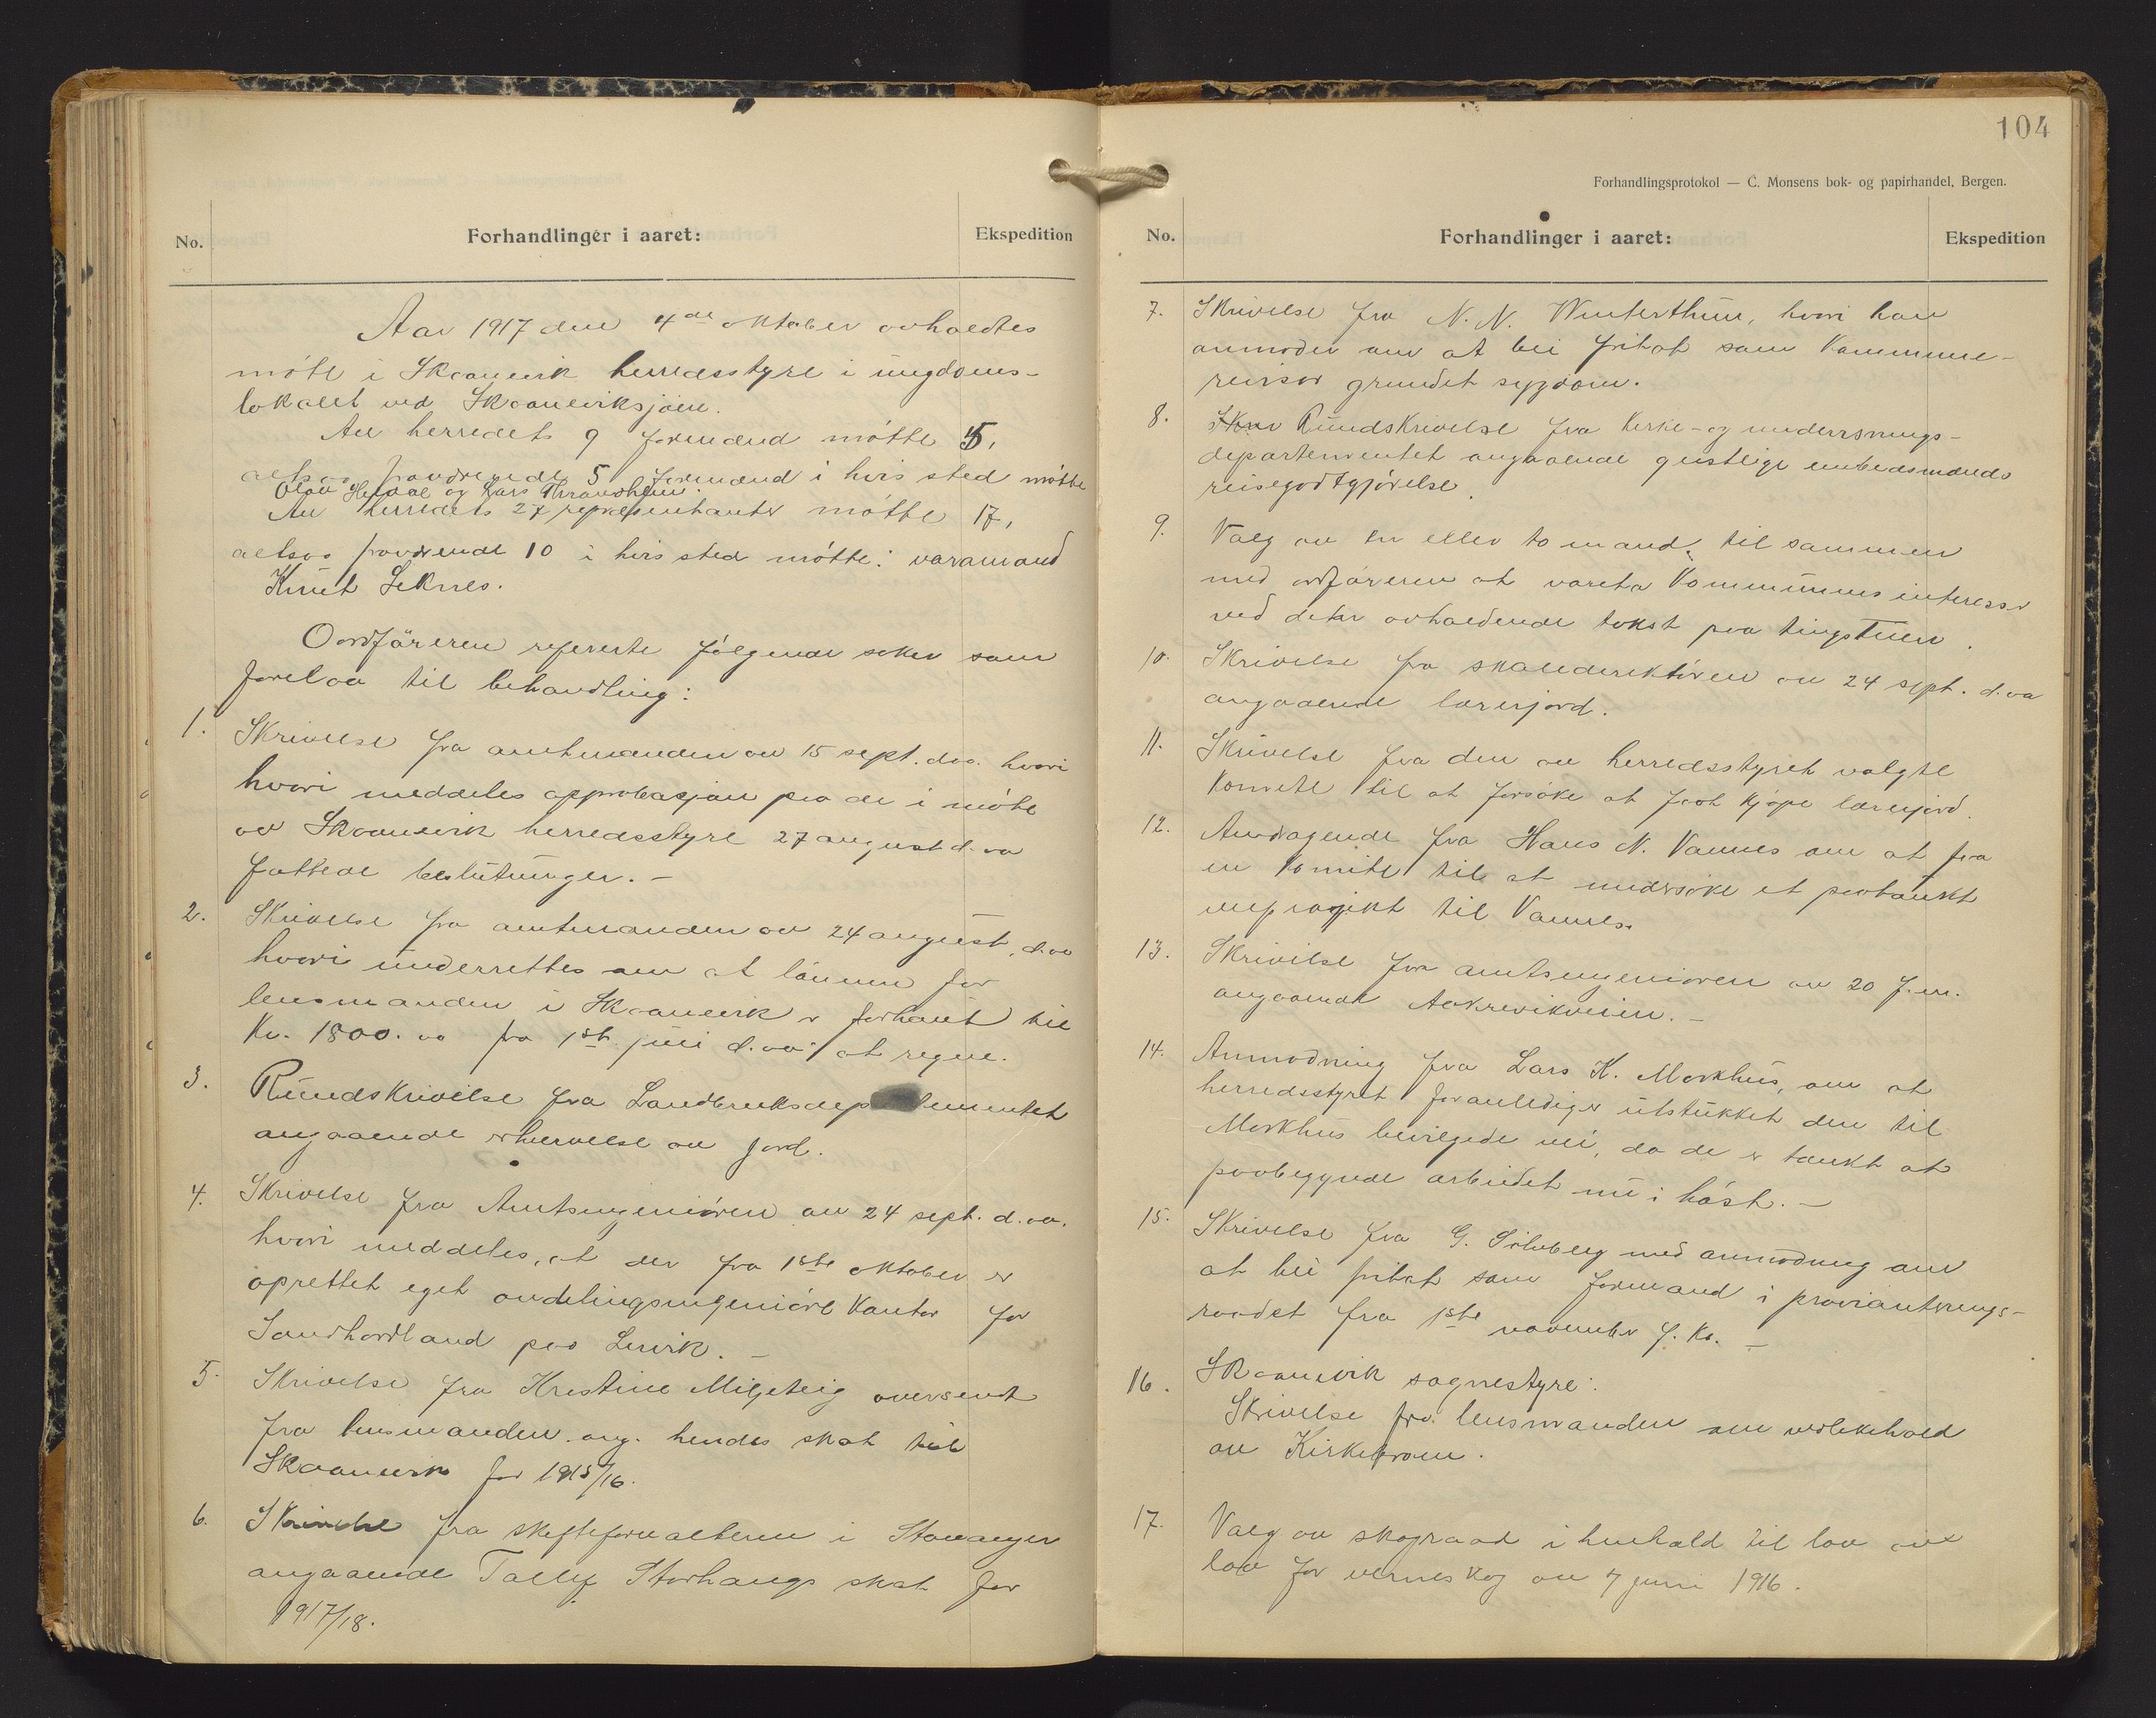 No.
Forhandlinger i aaret:
Ekspedition
Aar 1917 den 4de oktober avholdtes
møte i Skaanevik herredsstyre i ungdoms-
lokalet ved Skaaneviksjøen.
Av herredets 9 formænd møtte 5,
altsaa fraværende 5 formænd i hvis sted møtte
Olav Helvae og Lars
Av herredets 27 repræsentanter møtte 17,
altsaa fraværende 10 i hvis sted møtte: varamand
Knut Leknes.
Oordføreren refererte følgende saker som
forelaa til behandling:
1. Skrivelse fra amtmanden av 15 sept. d.aa. hvori
hvori meddeles approbasjon paa de i møte
av Skaanevik herredsstyre 27 august d.aa
fattede beslutninger. —
2. Skrivelse fra amtmanden av 24 august, d.aa
hvori underrettes om at lønnen for
lensmanden i Skaanevik er forhøiet til
Kr. 1800.00 fra 1ste juli d.aa at regne.
3. Rundskrivelse fra Landbruksdepartementet
angaaende erhvervelse av jord.
4. Skrivelse fra Amtsingeniøren av 24 sept. d.aa.
hvori meddeles, at der fra 1ste oktober er
oprettet eget avdelingsingeniørkontor for
Søndhordland paa Lervik. —
5. Skrivelse fra Kristine Miljeteig oversendt
fra lensmanden ang. hendes skat til
Skaanevik for 1915/16.
6. Skrivelse fra skifteforvalteren i Stavanger
angaaende Tallef Storhaugs skat for
1917/18.
104
Forhandlingsprotokol — C. Monsens bok- og papirhandel, Bergen.
No.
Forhandlinger i aaret:
Ekspedition
7. Skrivelse fra N. N. Winterthun, hvori han
anmoder om at bli fritat som kommune-
revisor grundet sygdom.
8. Rundskrivelse fra Kirke- og undervisnings-
departementet angaaende geistlige embedsmænds
reisegodtgjørelse.
9. Valg av en eller to mænd til sammen
med ordføreren at vareta kommunens interesser
ved den avholdende takst paa tingstuen.
10. Skrivelse fra skoledirektøren av 24 sept. d.aa
angaaende lærerjord.
11. Skrivelse fra den av herredsstyret valgte
Komite til at forsøke at faat kjøpe lærerjord.
12. Andragende fra Hans N. Vannes om at faa
en komite til at undersøke et paatænkt
veiprosjekt til Vannes.
13. Skrivelse fra amtsingeniøren av 20 f.m.
angaaende Aakrevikveien. —
14. Anmodning fra Lars K. Markhus, om at
herredsstyret foranlediger utstukket den til
Markhus bevilgede vei, da de er tænkt at
paabegynde arbeidet nu i høst. —
15. Skrivelse fra G. Silseberg med anmodning om
at bli fritat som formand i provianterings-
raadet fra 1ste november f. Kr. —
16. Skaanevik sognestyre:
Skrivelse fra lensmanden om vedlikehold
av Kirkebroen.
17. Valg av skograad i henhold til lov
lov for verneskog av 7 juni 1916.